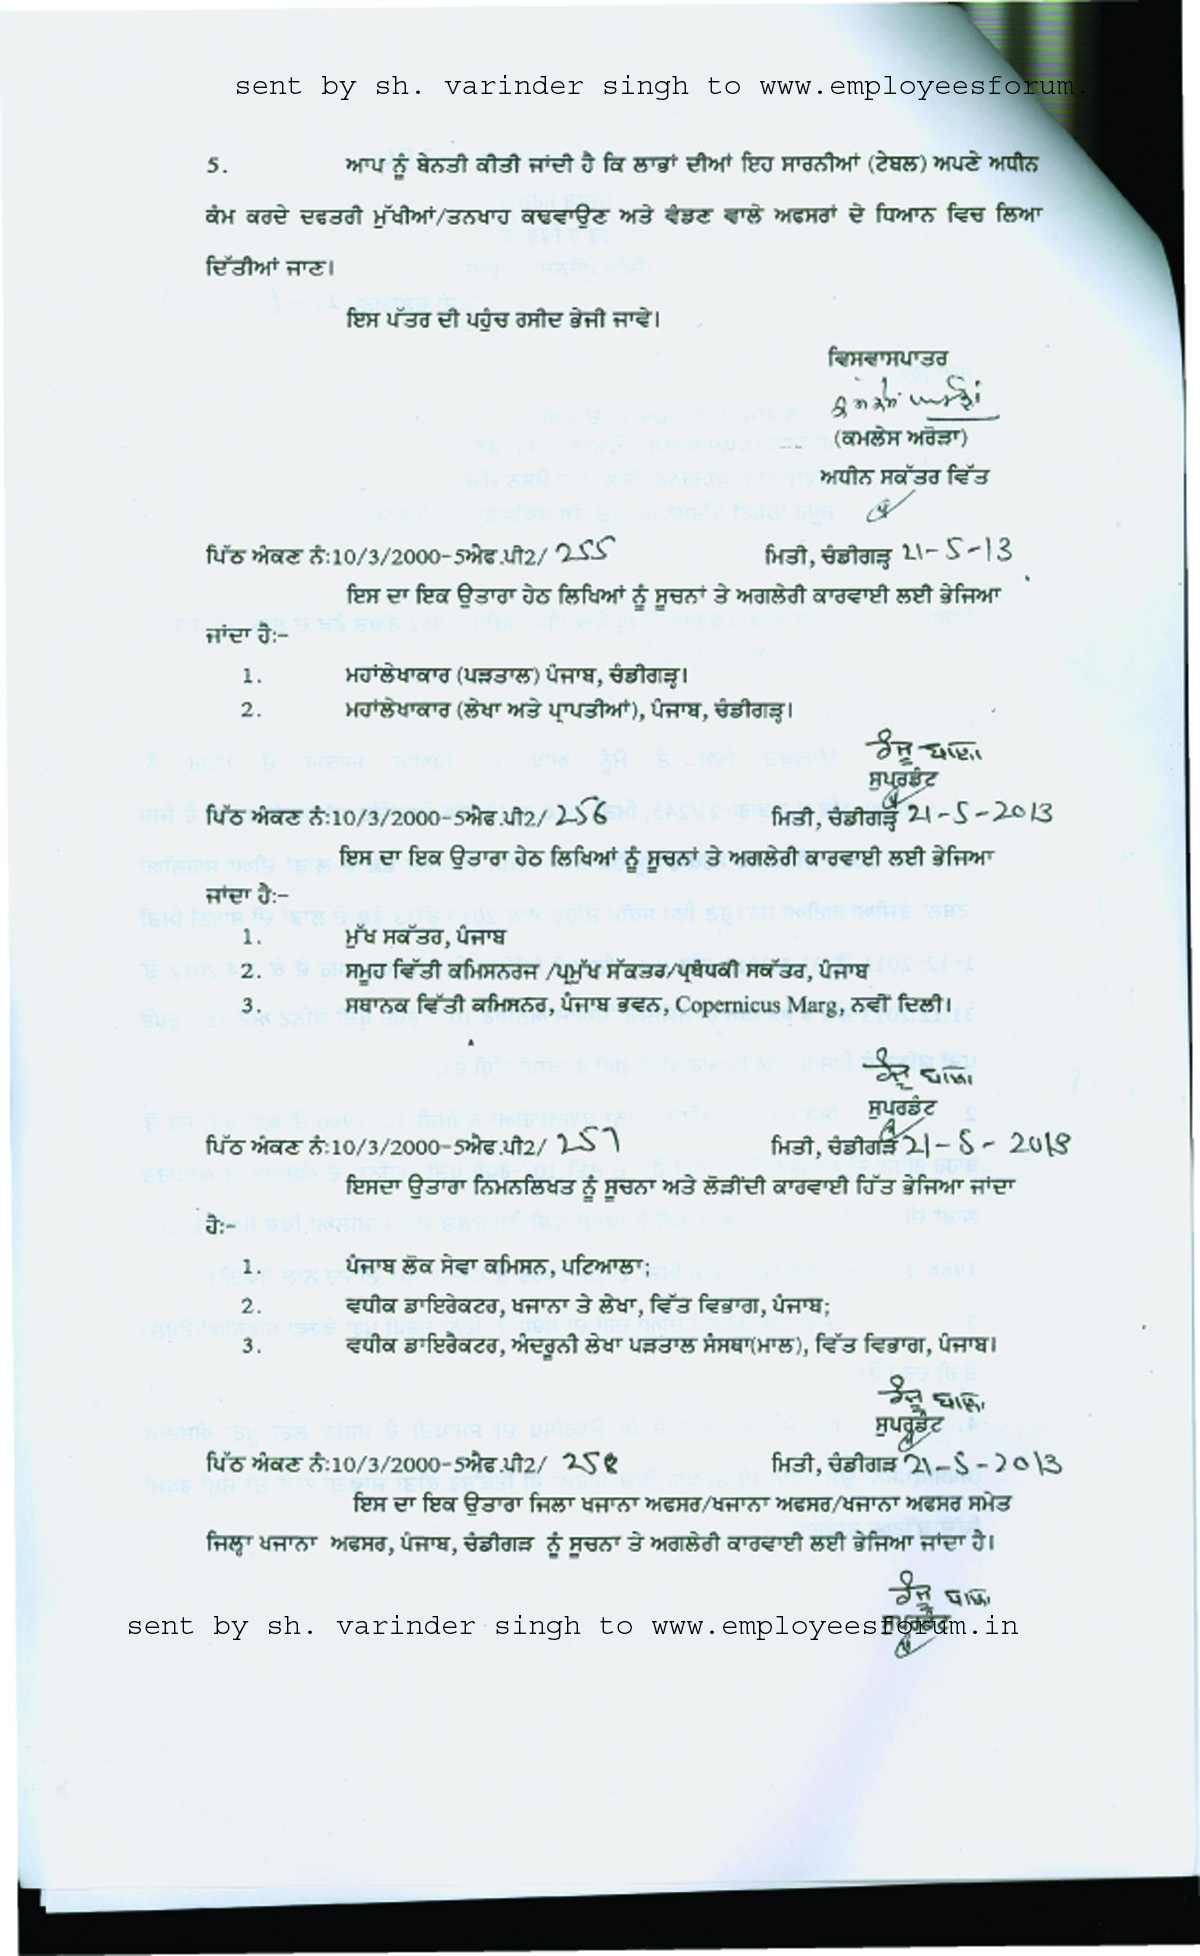 sent by sh. varinder singh to www.employeesforum.
5. ਆਪ ਨੂੰ ਬੇਨਤੀ ਕੀਤੀ ਜਾਂਦੀ ਹੈ ਕਿ ਲਾਭਾਂ ਦੀਆਂ ਇਹ ਸਾਰਨੀਆਂ (ਟੇਬਲ) ਅਪਣੇ ਅਧੀਨ
ਕੰਮ ਕਰਦੇ ਦਫਤਰੀ ਮੁੱਖੀਆਂ/ਤਨਖਾਹ ਕਢਵਾਉਣ ਅਤੇ ਵੰਡਣ ਵਾਲੇ ਅਫਸਰਾਂ ਦੇ ਧਿਆਨ ਵਿਚ ਲਿਆ
ਦਿੱਤੀਆਂ ਜਾਣ।
ਇਸ ਪੱਤਰ ਦੀ ਪਹੁੰਚ ਰਸੀਦ ਭੇਜੀ ਜਾਵੇ।
ਵਿਸਵਾਸਪਾਤਰ
(ਕਮਲੇਸ ਅਰੋੜਾ)
ਅਧੀਨ ਸਕੱਤਰ ਵਿੱਤ
ਪਿੱਠ ਅੰਕਣ ਨੰ:10/3/2000-5ਐਫ.ਪੀ2/ 255 ਮਿਤੀ, ਚੰਡੀਗੜ੍ਹ 21-5-13
ਇਸ ਦਾ ਇਕ ਉਤਾਰਾ ਹੇਠ ਲਿਖਿਆਂ ਨੂੰ ਸੂਚਨਾਂ ਤੇ ਅਗਲੇਰੀ ਕਾਰਵਾਈ ਲਈ ਭੇਜਿਆ
ਜਾਂਦਾ ਹੈ:-
1. ਮਹਾਂਲੇਖਾਕਾਰ (ਪੜਤਾਲ) ਪੰਜਾਬ, ਚੰਡੀਗੜ੍ਹ।
2. ਮਹਾਂਲੇਖਾਕਾਰ (ਲੇਖਾ ਅਤੇ ਪ੍ਰਾਪਤੀਆਂ), ਪੰਜਾਬ, ਚੰਡੀਗੜ੍ਹ।
ਸੁਪਰਡੰਟ
ਪਿੱਠ ਅੰਕਣ ਨੰ:10/3/2000-5ਐਫ.ਪੀ2/ 256 ਮਿਤੀ, ਚੰਡੀਗੜ੍ਹ 21-5-2013
ਇਸ ਦਾ ਇਕ ਉਤਾਰਾ ਹੇਠ ਲਿਖਿਆਂ ਨੂੰ ਸੂਚਨਾਂ ਤੇ ਅਗਲੇਰੀ ਕਾਰਵਾਈ ਲਈ ਭੇਜਿਆ
ਜਾਂਦਾ ਹੈ:-
1. ਮੁੱਖ ਸਕੱਤਰ, ਪੰਜਾਬ
2. ਸਮੂਹ ਵਿੱਤੀ ਕਮਿਸਨਰਜ /ਪ੍ਰਮੁੱਖ ਸੱਕਤਰ/ਪ੍ਰਬੰਧਕੀ ਸਕੱਤਰ, ਪੰਜਾਬ
3. ਸਥਾਨਕ ਵਿੱਤੀ ਕਮਿਸਨਰ, ਪੰਜਾਬ ਭਵਨ, Copernicus Marg, ਨਵੀਂ ਦਿਲੀ।
ਸੁਪਰਡੰਟ
ਪਿੱਠ ਅੰਕਣ ਨੰ:10/3/2000-5ਐਫ.ਪੀ2/ 257 ਮਿਤੀ, ਚੰਡੀਗੜ 21-5-2013
ਇਸਦਾ ਉਤਾਰਾ ਨਿਮਨਲਿਖਤ ਨੂੰ ਸੂਚਨਾ ਅਤੇ ਲੋੜੀਂਦੀ ਕਾਰਵਾਈ ਹਿੱਤ ਭੇਜਿਆ ਜਾਂਦਾ
ਹੈ:-
1. ਪੰਜਾਬ ਲੋਕ ਸੇਵਾ ਕਮਿਸਨ, ਪਟਿਆਲਾ;
2. ਵਧੀਕ ਡਾਇਰੇਕਟਰ, ਖਜਾਨਾ ਤੇ ਲੇਖਾ, ਵਿੱਤ ਵਿਭਾਗ, ਪੰਜਾਬ;
3. ਵਧੀਕ ਡਾਇਰੈਕਟਰ, ਅੰਦਰੂਨੀ ਲੇਖਾ ਪੜਤਾਲ ਸੰਸਥਾ(ਮਾਲ), ਵਿੱਤ ਵਿਭਾਗ, ਪੰਜਾਬ।
ਸੁਪਰਡੰਟ
ਪਿੱਠ ਅੰਕਣ ਨੰ:10/3/2000-5ਐਫ.ਪੀ2/ 258 ਮਿਤੀ, ਚੰਡੀਗੜ 21-5-2013
ਇਸ ਦਾ ਇਕ ਉਤਾਰਾ ਜਿਲਾ ਖਜਾਨਾ ਅਫਸਰ/ਖਜਾਨਾ ਅਫਸਰ/ਖਜਾਨਾ ਅਫਸਰ ਸਮੇਤ
ਜਿਲ੍ਹਾ ਖਜਾਨਾ ਅਫਸਰ, ਪੰਜਾਬ, ਚੰਡੀਗੜ ਨੂੰ ਸੂਚਨਾ ਤੇ ਅਗਲੇਰੀ ਕਾਰਵਾਈ ਲਈ ਭੇਜਿਆ ਜਾਂਦਾ ਹੈ।
sent by sh. varinder singh to www.employeesforum.in
ਸੁਪਰਡੰਟ